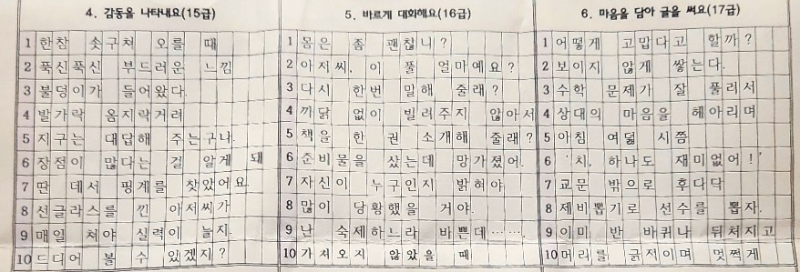 4. 감동을 나타내요(15급)
1 한참 솟구쳐 오를 때
2 푹신푹신 부드러운 느낌
3 불덩이가 들어왔다.
4 발가락 움지락거려
5 지구는 대답해 주는구나.
6 장점이 많다는 걸 알게 돼
7 딴 데서 핑계를 찾았어요
8 선글라스를 낀 아저씨가
9 매일 쳐야 실력이 늘지.
10 드디어 볼 수 있겠지?
5. 바르게 대화해요(16급)
1 몸은 좀 괜찮니?
2 아저씨, 이 풀 얼마예요?
3 다시 한번 말해 줄래?
4 까닭 없이 빌려주지 않아서
5 책을 한 권 소개해 줄래?
6 준비물을 샀는데 망가졌어.
7 자신이 누구인지 밝혀야
8 많이 당황했을 거야.
9 난 숙제하느라 바쁜데…….
10 가져오지 않았을 때
6. 마음을 담아 글을 써요(17급)
1 어떻게 고맙다고 할까?
2 보이지 않게 쌓는다.
3 수학 문제가 잘 풀려서
4 상대의 마음을 헤아리며
5 아침 여덟 시쯤
6 ‘치, 하나도 재미없어!’
7 교문 밖으로 후다닥
8 제비뽑기로 선수를 뽑자.
9 이미 반 바퀴나 뒤처지고
10 머리를 긁적이며 멋쩍게